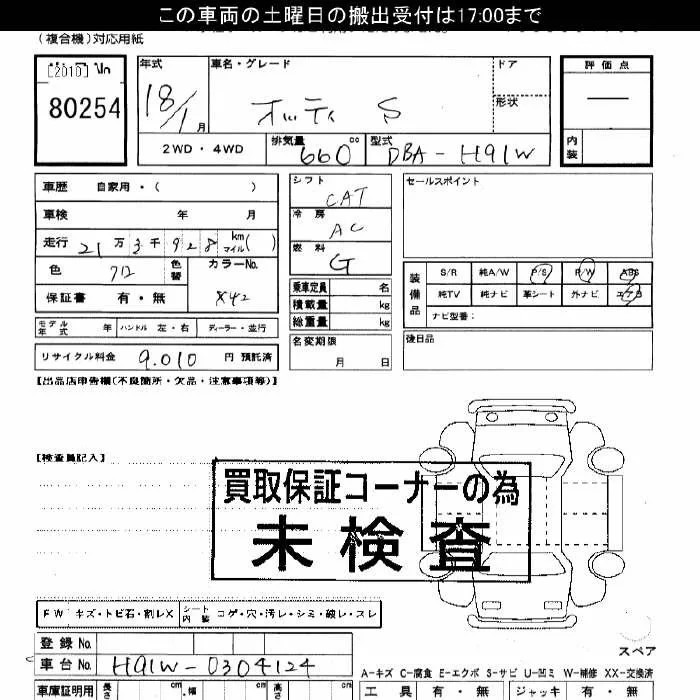 この車両の土曜日の搬出受付は17:00まで
(複合機)対応用紙
[2010]
80254
年式
18/1 月
車名・グレード
オッティ S
ドア
形状
評価点
—
内装
2WD・4WD
排気量
660 cc
型式
DBA-H91W
車歴 自家用・( )
車検 年 月
走行 21万3千928 km マイル( )
色 712 色替
カラーNo.
X42
保証書 有・無
モデル年式 年 ハンドル 左・右 ディーラー・並行
リサイクル料金 9,010 円 預託済
シフト
CAT
冷房
AC
燃料
G
乗車定員 名
積載量 kg
総重量 kg
名変期限
月 日
セールスポイント
装備品
S/R 純A/W P/S P/W ABS
純TV 純ナビ 革シート 外ナビ エアB
ナビ型番:
後日品
【出品店申告欄(不良箇所・欠品・注意事項等)】
【検査員記入】
買取保証コーナーの為
未検査
FW キズ・トビ石・割レX シート内装 コゲ・穴・汚レ・シミ・破レ・スレ
スペア
登録No.
車台No. H91W-0304124
車庫証明用 長さ cm 幅 cm 高さ cm
A-キズ C-腐食 E-エクボ S-サビ U-凹ミ W-補修 XX-交換済
工具 有・無 ジャッキ 有・無